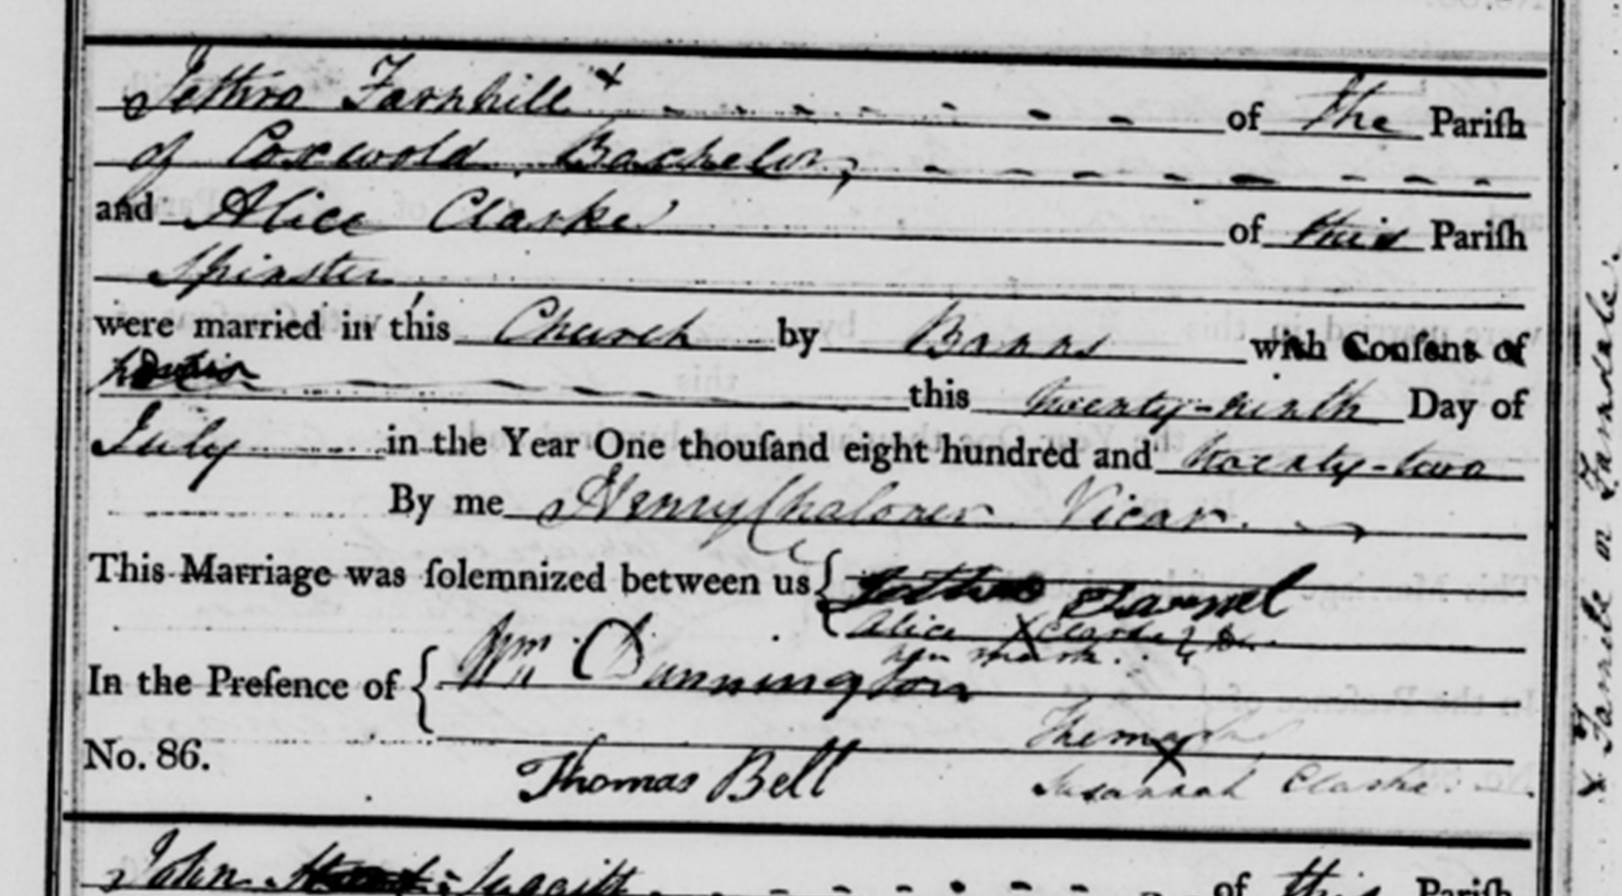 Jethro Farnhill + of the Pariſh
of Coxwold Bachelor,
and Alice Clarke of this Pariſh
Spinster
were married in this Church by Banns with Conſent of
this twenty-ninth Day of
July in the Year One thouſand eight hundred and twenty-two
By me Henry Chaloner Vicar.
This Marriage was ſolemnized between us { Jethro
Alice X Clarke
her mark.
In the Preſence of { Wm. Dunnington
The mark
X
No. 86. Thomas Bell Susannah Clarke
John of this Pariſh
x Farnill or Farndale.